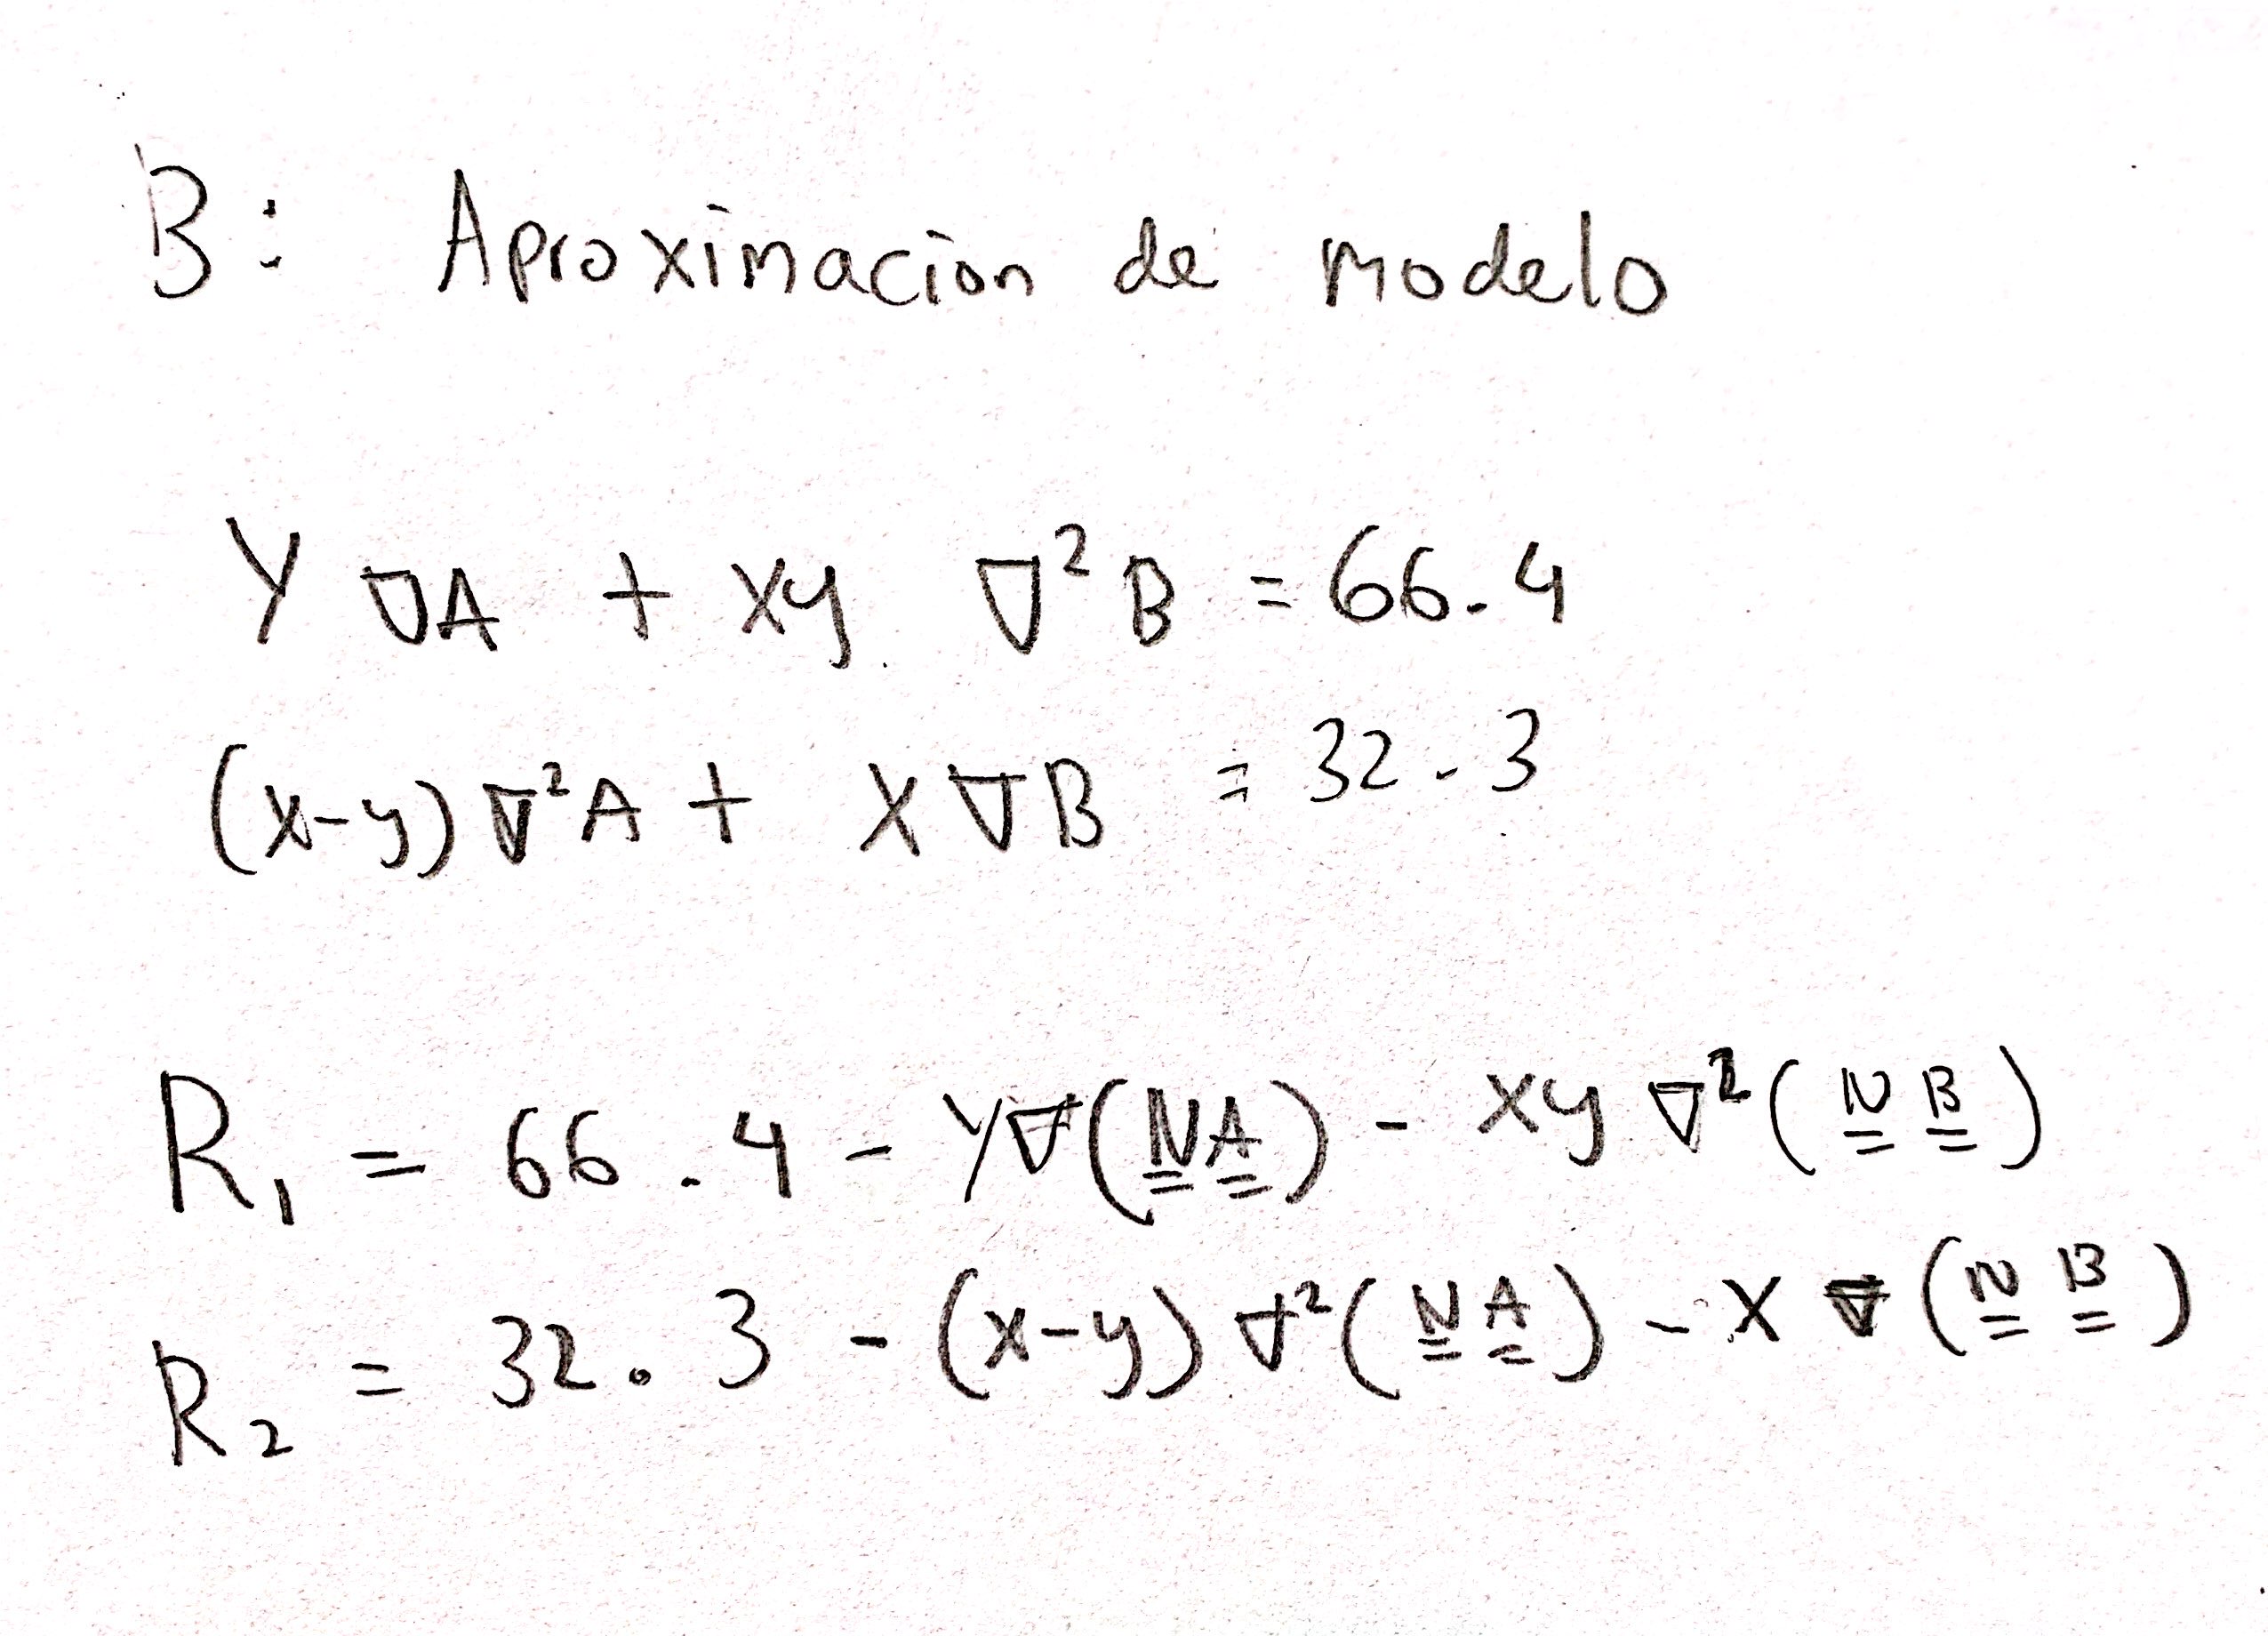 B: Aproximación de modelo
Y ∇A + xy ∇²B = 66.4
(x-y) ∇²A + X ∇B = 32.3
R₁ = 66.4 - Y∇(N̳A̳) - xy ∇²(N̳ B̳)
R₂ = 32.3 - (x-y) ∇²(N̳ A̳) - X ∇(N̳ B̳)